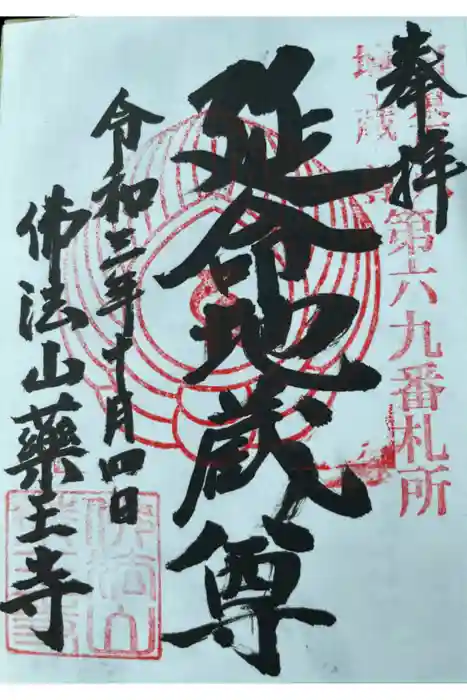 奉拝
第六九番札所
地蔵尊
延命地蔵尊
令和三年十月四日
佛法山薬王寺